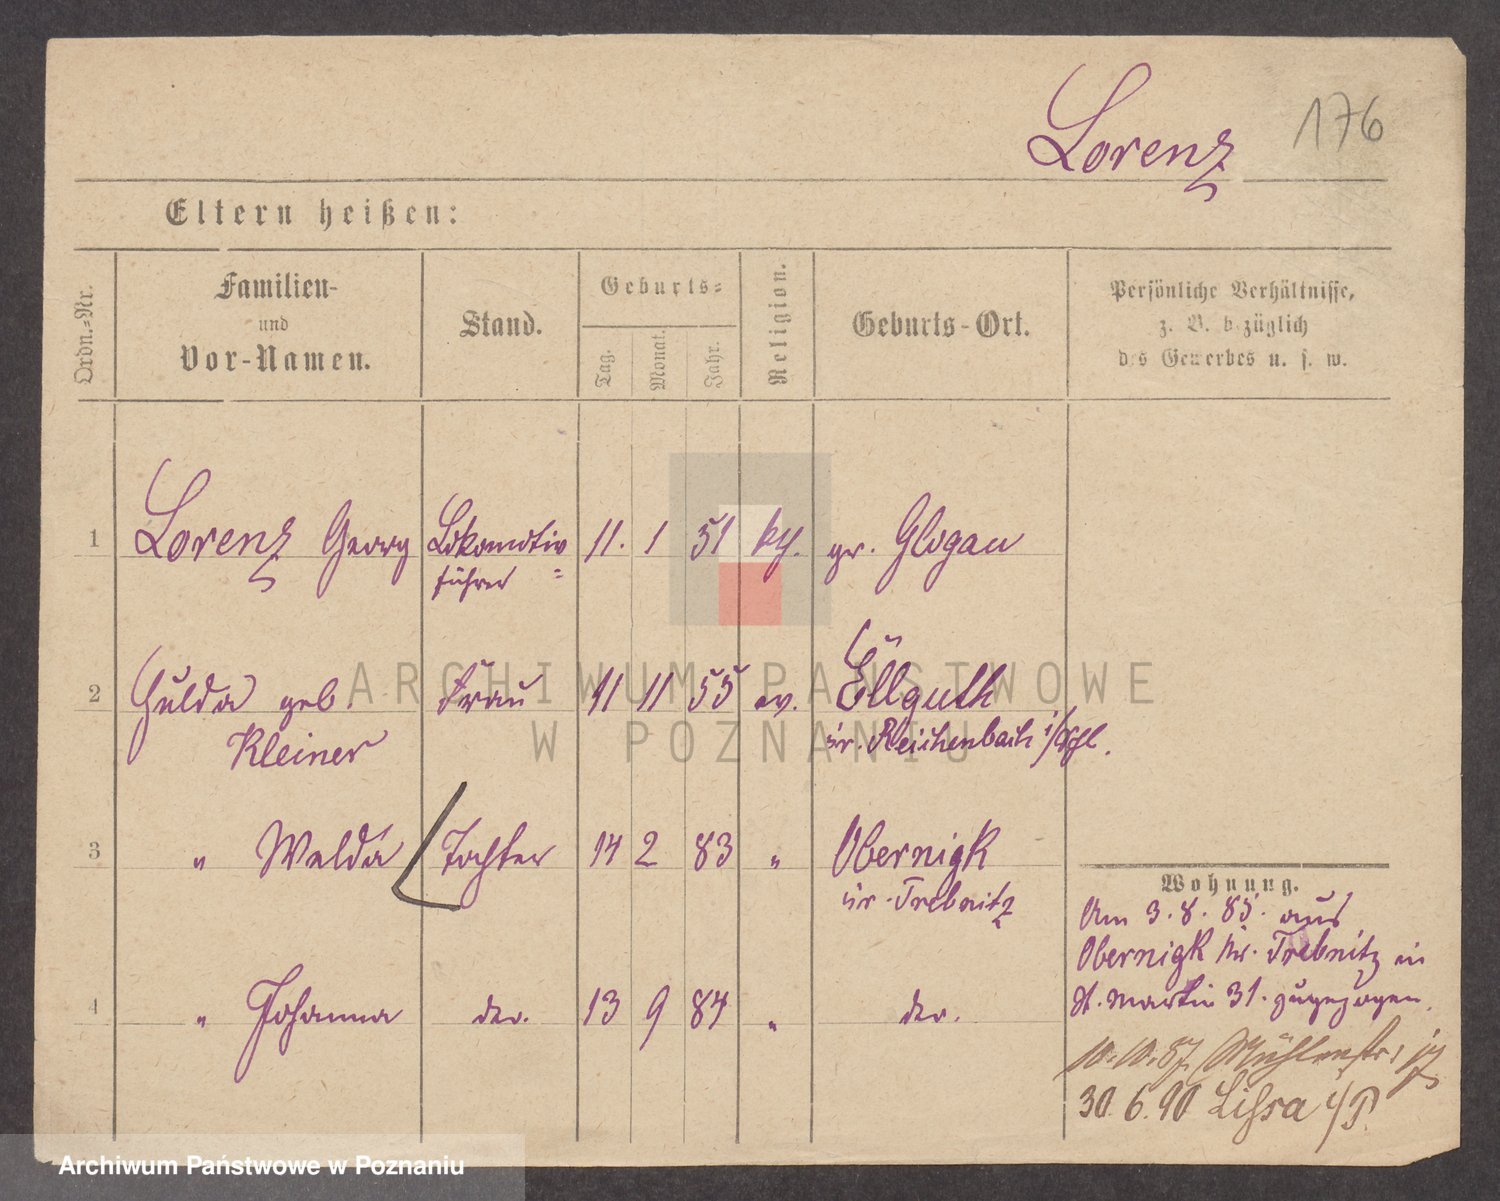 Lorenz 176
Eltern heißen:
Ordn.-Nr.
Familien-
und
Vor-Namen.
Stand.
Geburts-
Tag.
Monat.
Jahr.
Religion.
Geburts-Ort.
Persönliche Verhältnisse,
z. B. bezüglich
des Gewerbes u. s. w.
1 Lorenz Georg Lokomotiv 11. 1 51 kth. gr. Glogau
führer
2 Hulda geb Frau 11 11 55 ev. Ellguth
Kleiner Kr. Reichenbach i/Schl.
3 " Walda Tochter 14 2 83 " Obernigk
Kr. Trebnitz
4 " Johanna do. 13 9 84 " do.
Wohnung.
Am 3.8.85. aus
Obernigk Kr. Trebnitz in
St. Martin 31. zugezogen.
10.10.87. Mühlenstr.
30.6.90 Lissa i/P.
ARCHIWUM PAŃSTWOWE
W POZNANIU
Archiwum Państwowe w Poznaniu